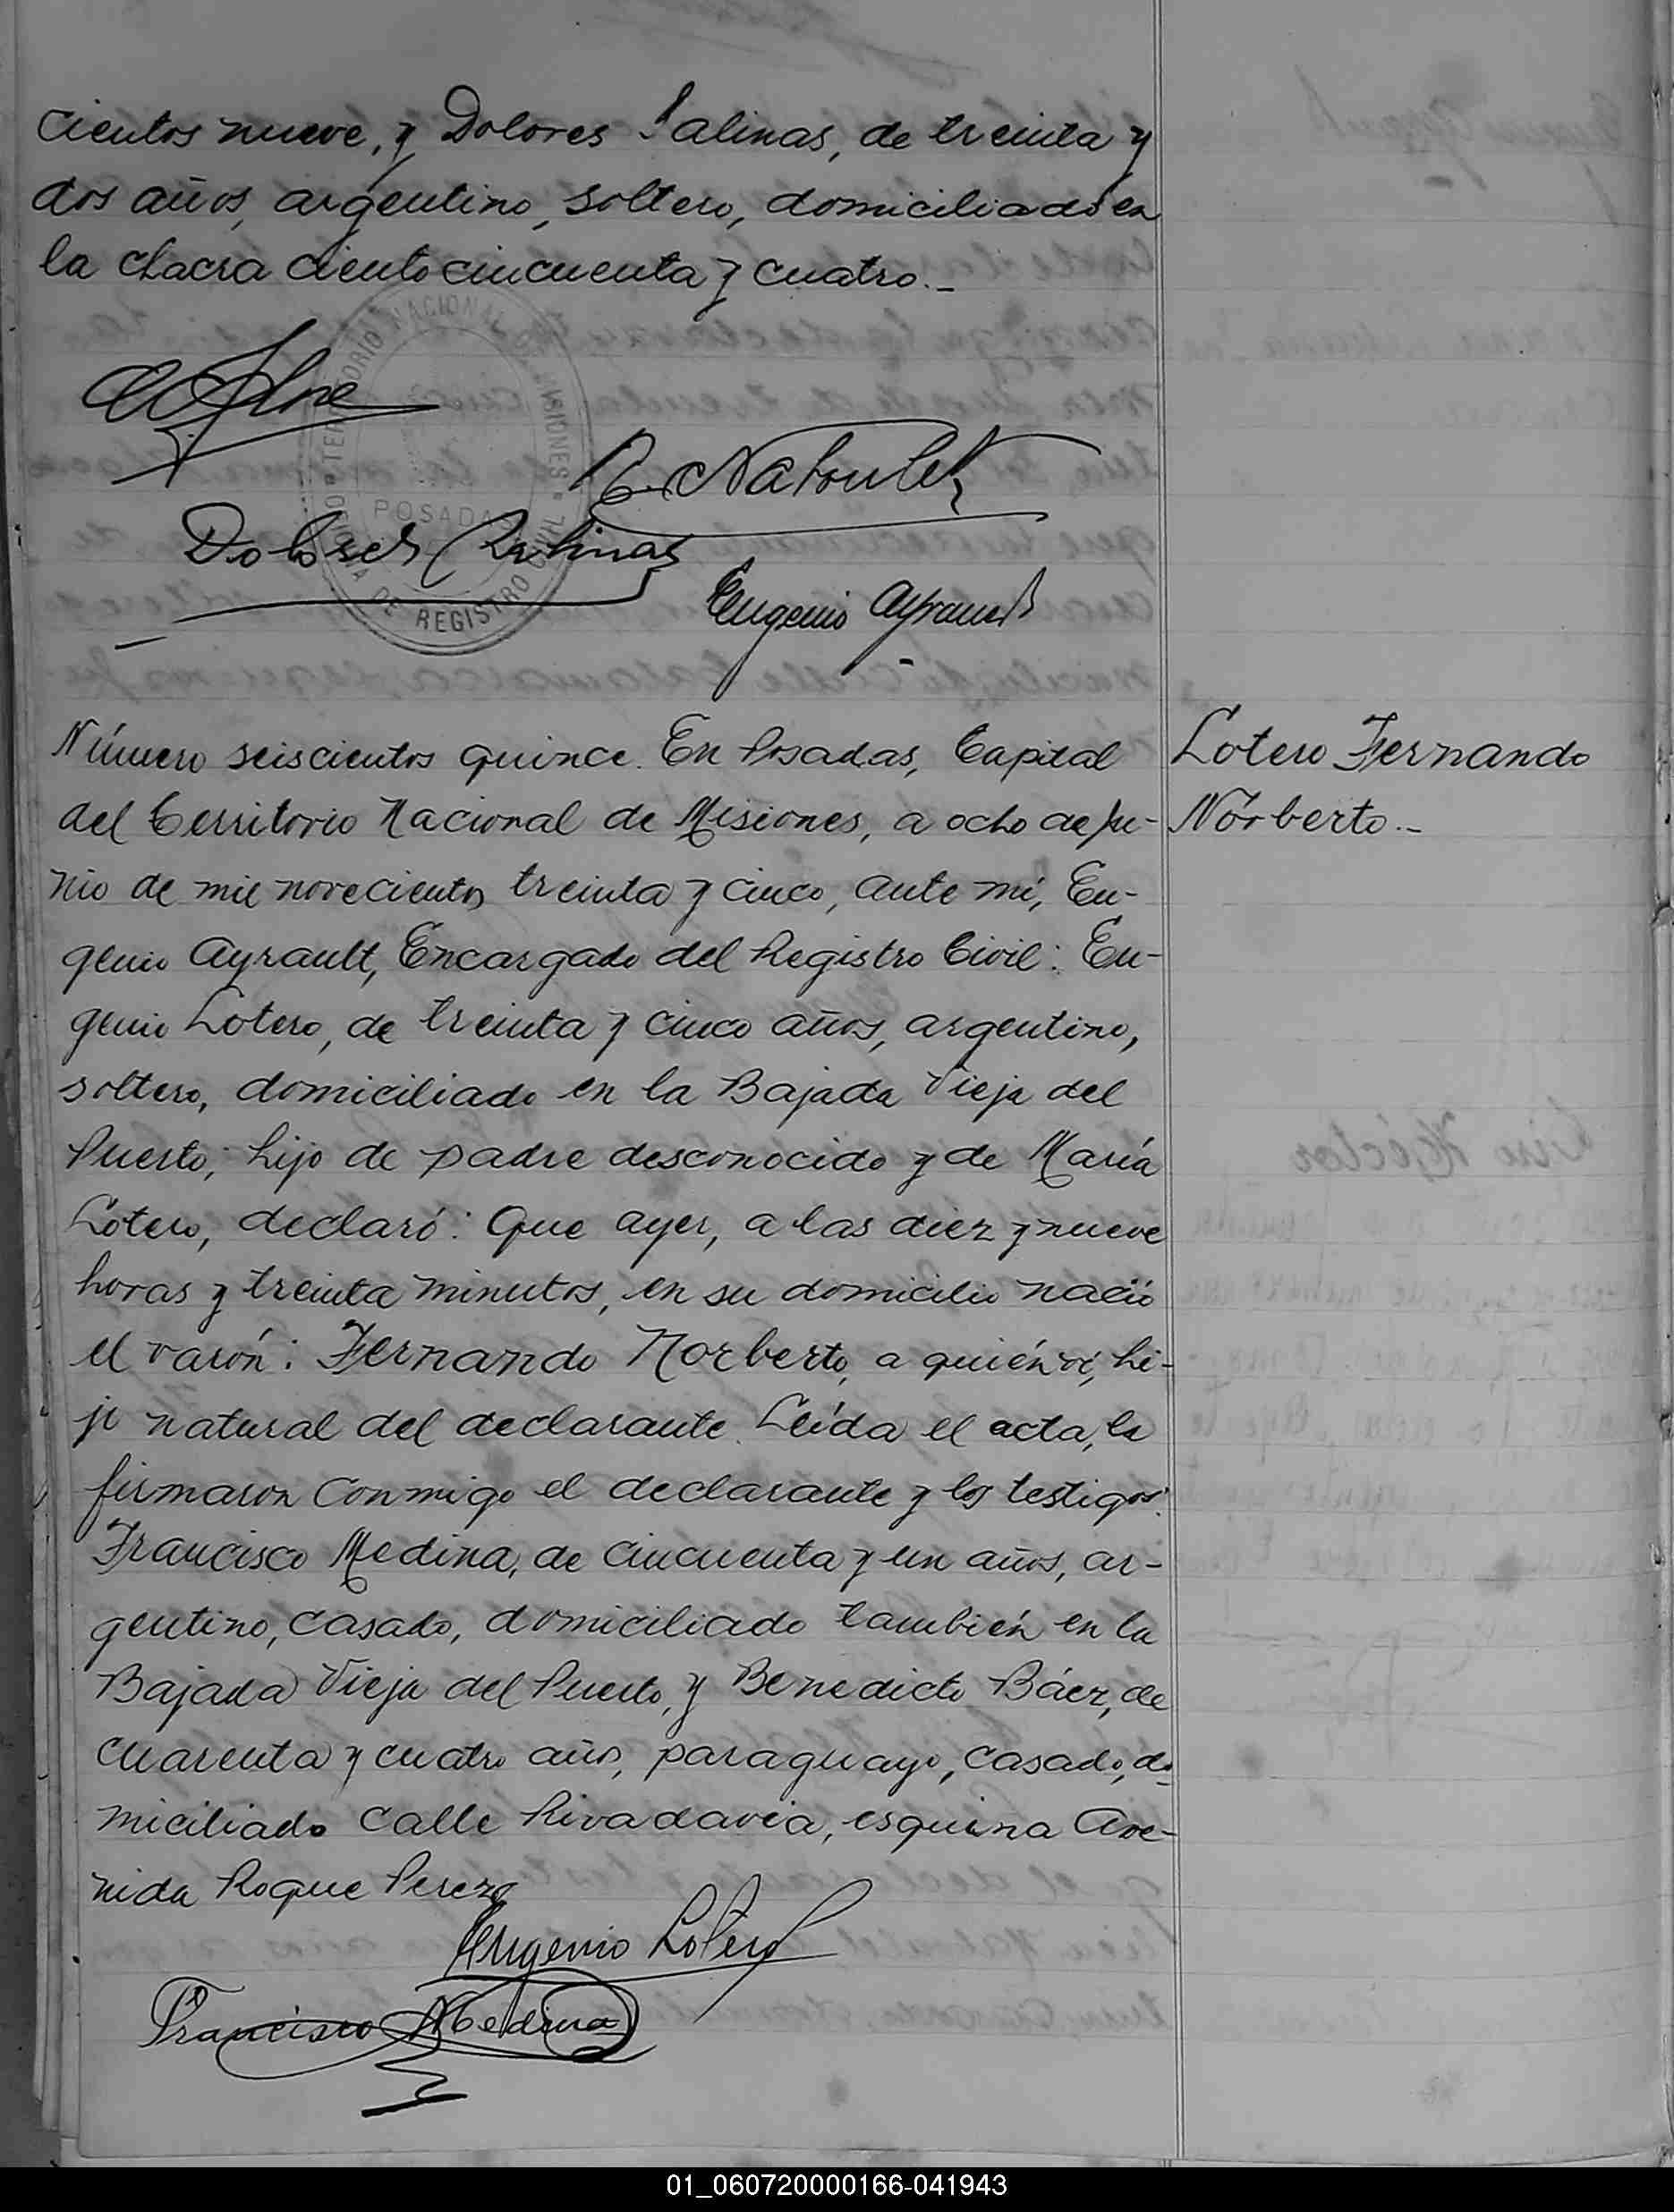 cientos nueve, y Dolores Salinas, de treinta y
dos años, argentino, soltero, domiciliado en
la chacra ciento cincuenta y cuatro.-
TERRITORIO NACIONAL DE MISIONES
POSADAS
OFICINA DE REGISTRO CIVIL
Dolores Salinas
Eugenio Ayrault
Número seiscientos quince. En Posadas, Capital
del Territorio Nacional de Misiones, a ocho de ju-
nio de mil novecientos treinta y cinco, ante mí, Eu-
genio Ayrault, Encargado del Registro Civil: Eu-
genio Lotero, de treinta y cinco años, argentino,
soltero, domiciliado en la Bajada Vieja del
Puerto; hijo de padre desconocido y de María
Lotero, declaró: Que ayer, a las diez y nueve
horas y treinta minutos, en su domicilio nació
el varón: Fernando Norberto, a quién ví, hi-
jo natural del declarante. Leída el acta, la
firmaron conmigo el declarante y los testigos:
Francisco Medina, de cincuenta y un años, ar-
gentino, casado, domiciliado también en la
Bajada Vieja del Puerto, y Benedicto Báez, de
cuarenta y cuatro años, paraguayo, casado, do-
miciliado calle Rivadavia, esquina Ave-
nida Roque Perez
Eugenio Lotero
Francisco Medina
Lotero Fernando
Norberto.-
01_060720000166-041943